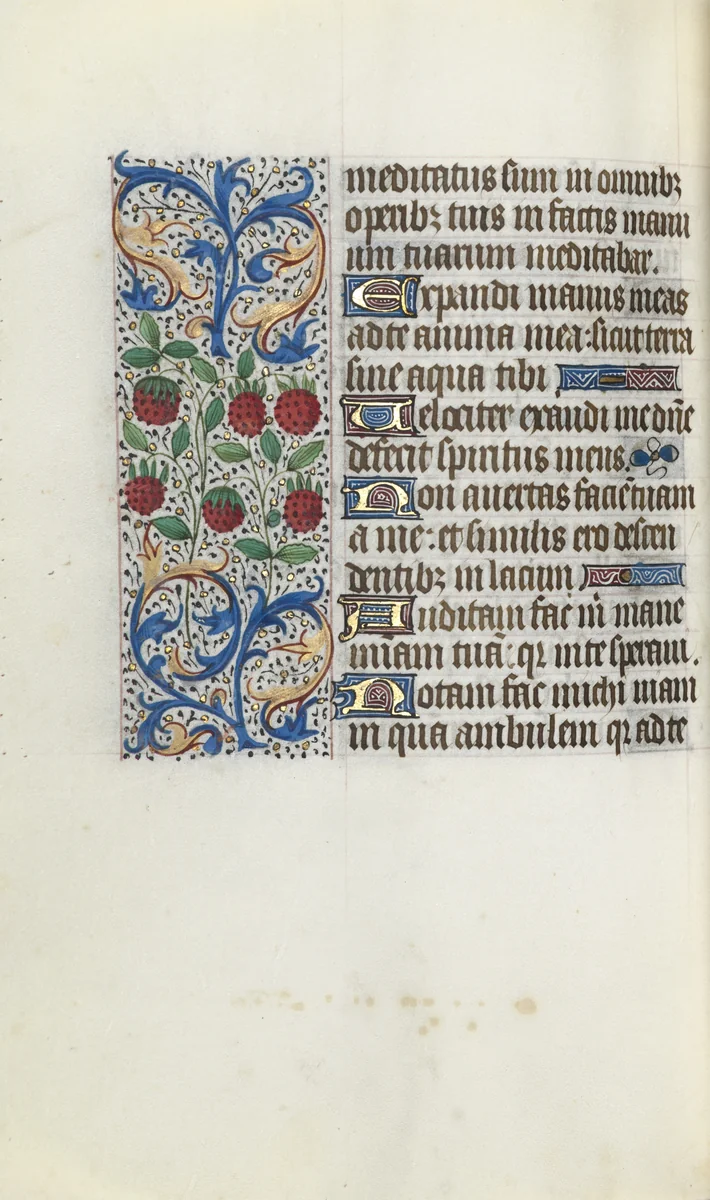 meditatus sum in omnibꝫ
operibꝫ tuis in factis manu
um tuarum meditabar.
Expandi manus meas
ad te anima mea: sicut terra
sine aqua tibi
Uelociter exaudi me dn̄e
defecit spiritus meus.
Non auertas faciē tuam
a me: et similis ero descen
dentibꝫ in lacum
Auditam fac m̄ mane
miam tuā: qꝛ in te speraui.
Notam fac michi uiam
in qua ambulem qꝛ ad te